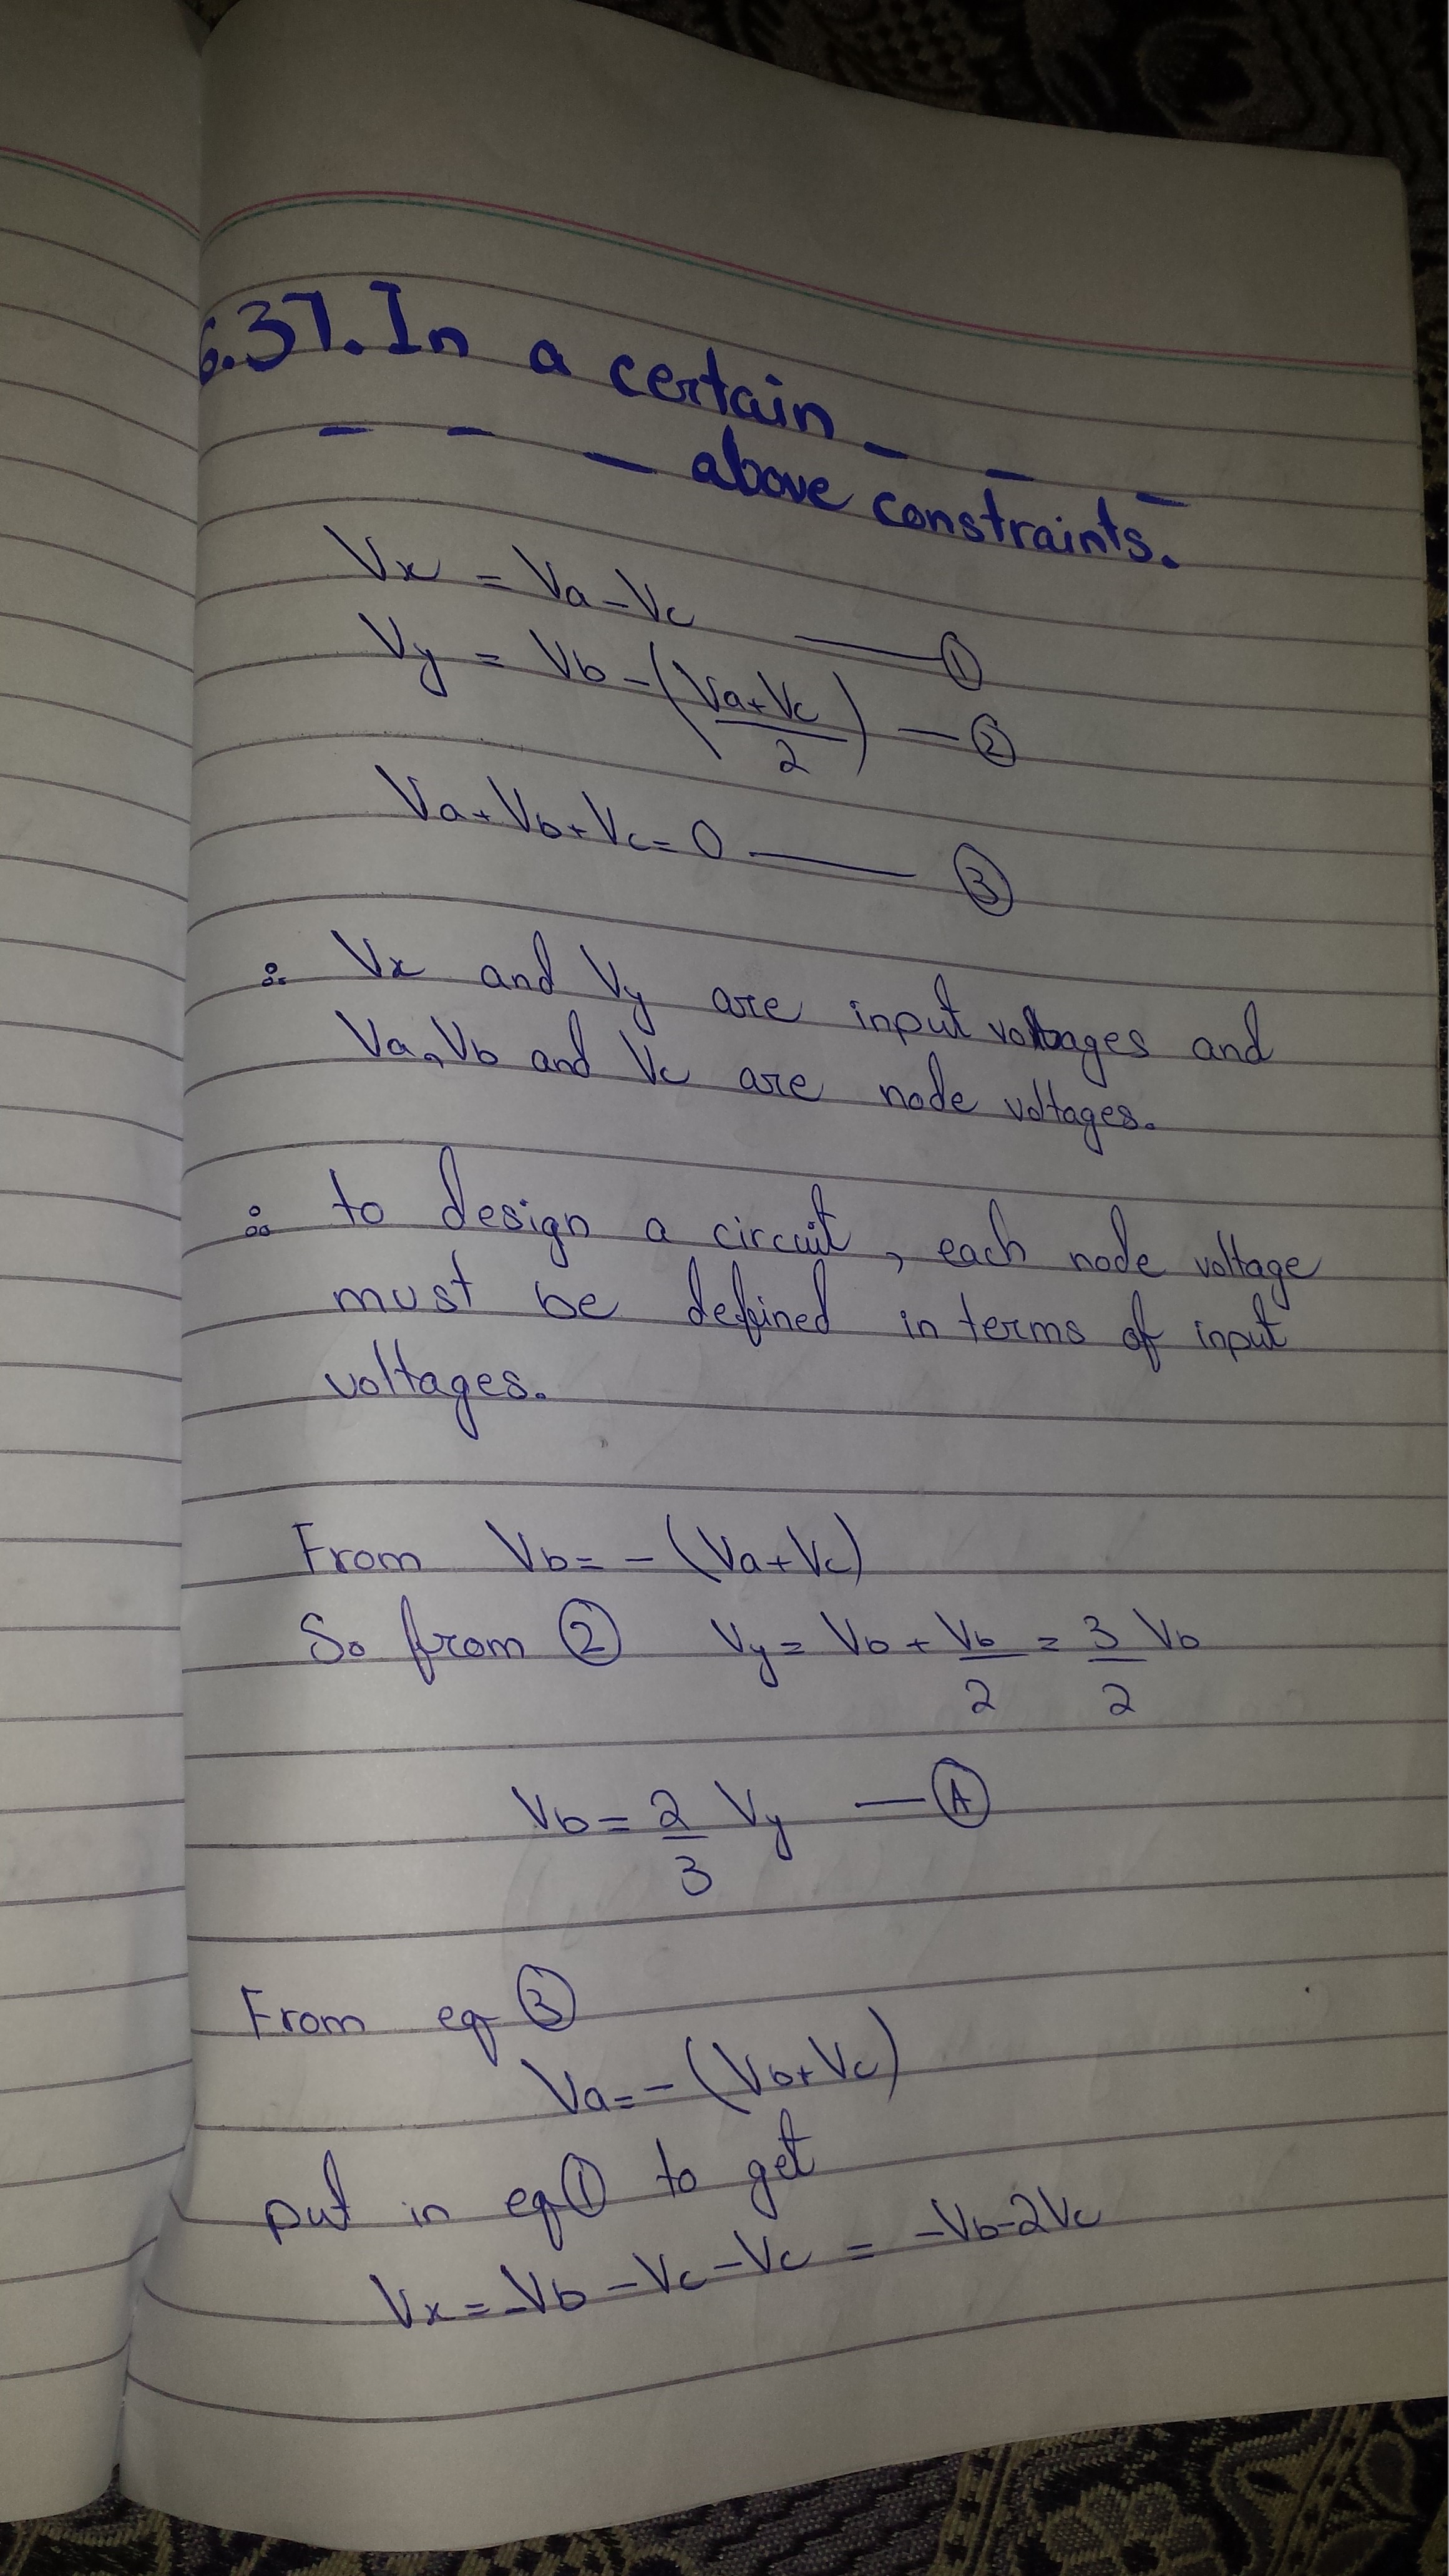 6.37. In a certain _ _ _
_ _ _ above constraints.
Vx = Va - Vc —— ①
Vy = Vb - (Va + Vc / 2) — ②
Va + Vb + Vc = 0 —— ③
∴ Vx and Vy are input voltages and
Va, Vb and Vc are node voltages.
∴ to design a circuit, each node voltage
must be defined in terms of input
voltages.
From Vb = - (Va + Vc)
So from ② Vy = Vb + Vb/2 = 3/2 Vb
Vb = 2/3 Vy — Ⓐ
From eq ③
Va = - (Vb + Vc)
put in eq ① to get
Vx = -Vb - Vc - Vc = -Vb - 2Vc